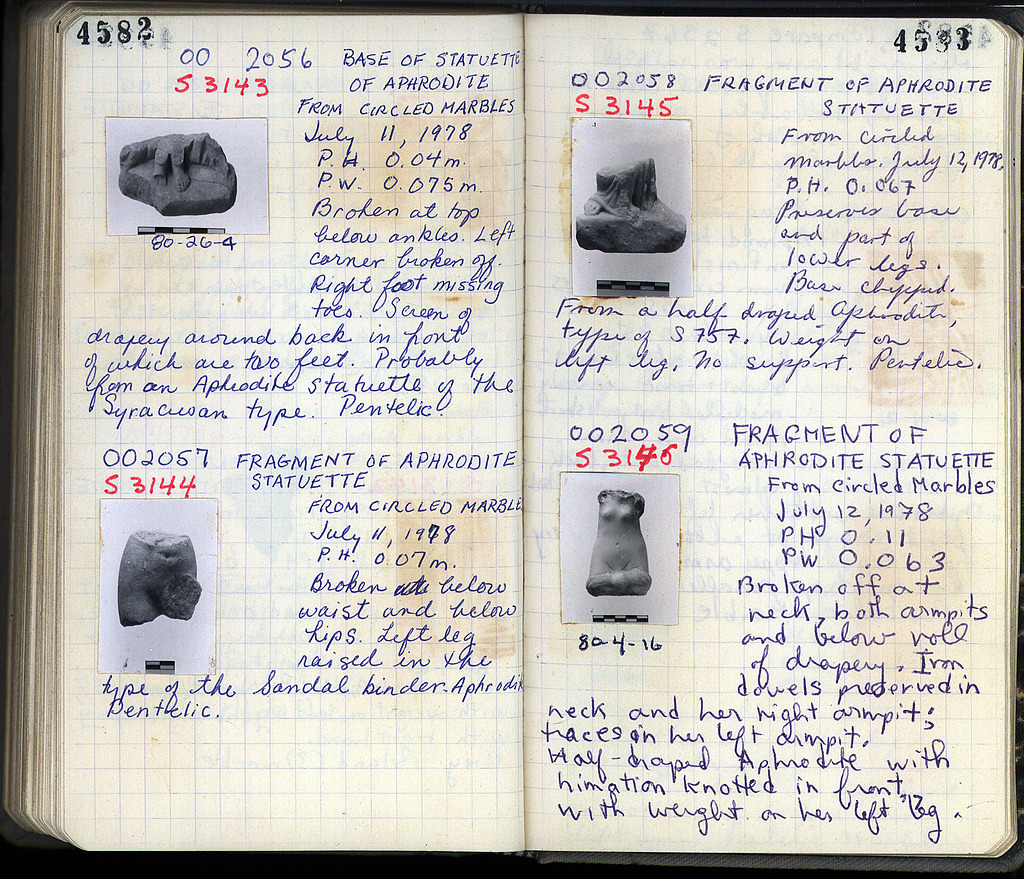 4582
00 2056 BASE OF STATUETTE
S 3143 OF APHRODITE
FROM CIRCLED MARBLES
July 11, 1978
P.H. 0.04m.
P.W. 0.075m.
Broken at top
below ankles. Left
corner broken off.
Right foot missing
toes. Screen of
80-26-4
drapery around back in front
of which are two feet. Probably
from an Aphrodite statuette of the
Syracusan type. Pentelic.
002057 FRAGMENT OF APHRODITE
S 3144 STATUETTE
FROM CIRCLED MARBLE
July 11, 1978
P.H. 0.07m.
Broken below
waist and below
hips. Left leg
raised in the
type of the Sandal binder. Aphrodit
Pentelic.
4583
002058 FRAGMENT OF APHRODITE
S 3145 STATUETTE
From circled
marbles. July 12, 1978.
P.H. 0.067
Preserves base
and part of
lower legs.
Base chipped.
From a half draped Aphrodite,
type of S 757. Weight on
left leg. No support. Pentelic.
002059 FRAGMENT OF
S 3146 APHRODITE STATUETTE
From Circled Marbles
July 12, 1978
PH 0.11
PW 0.063
Broken off at
neck, both armpits
and below roll
of drapery. Iron
dowels preserved in
80-4-16
neck and her right armpit;
traces in her left armpit.
Half-draped Aphrodite with
himation knotted in front,
with weight on her left leg.